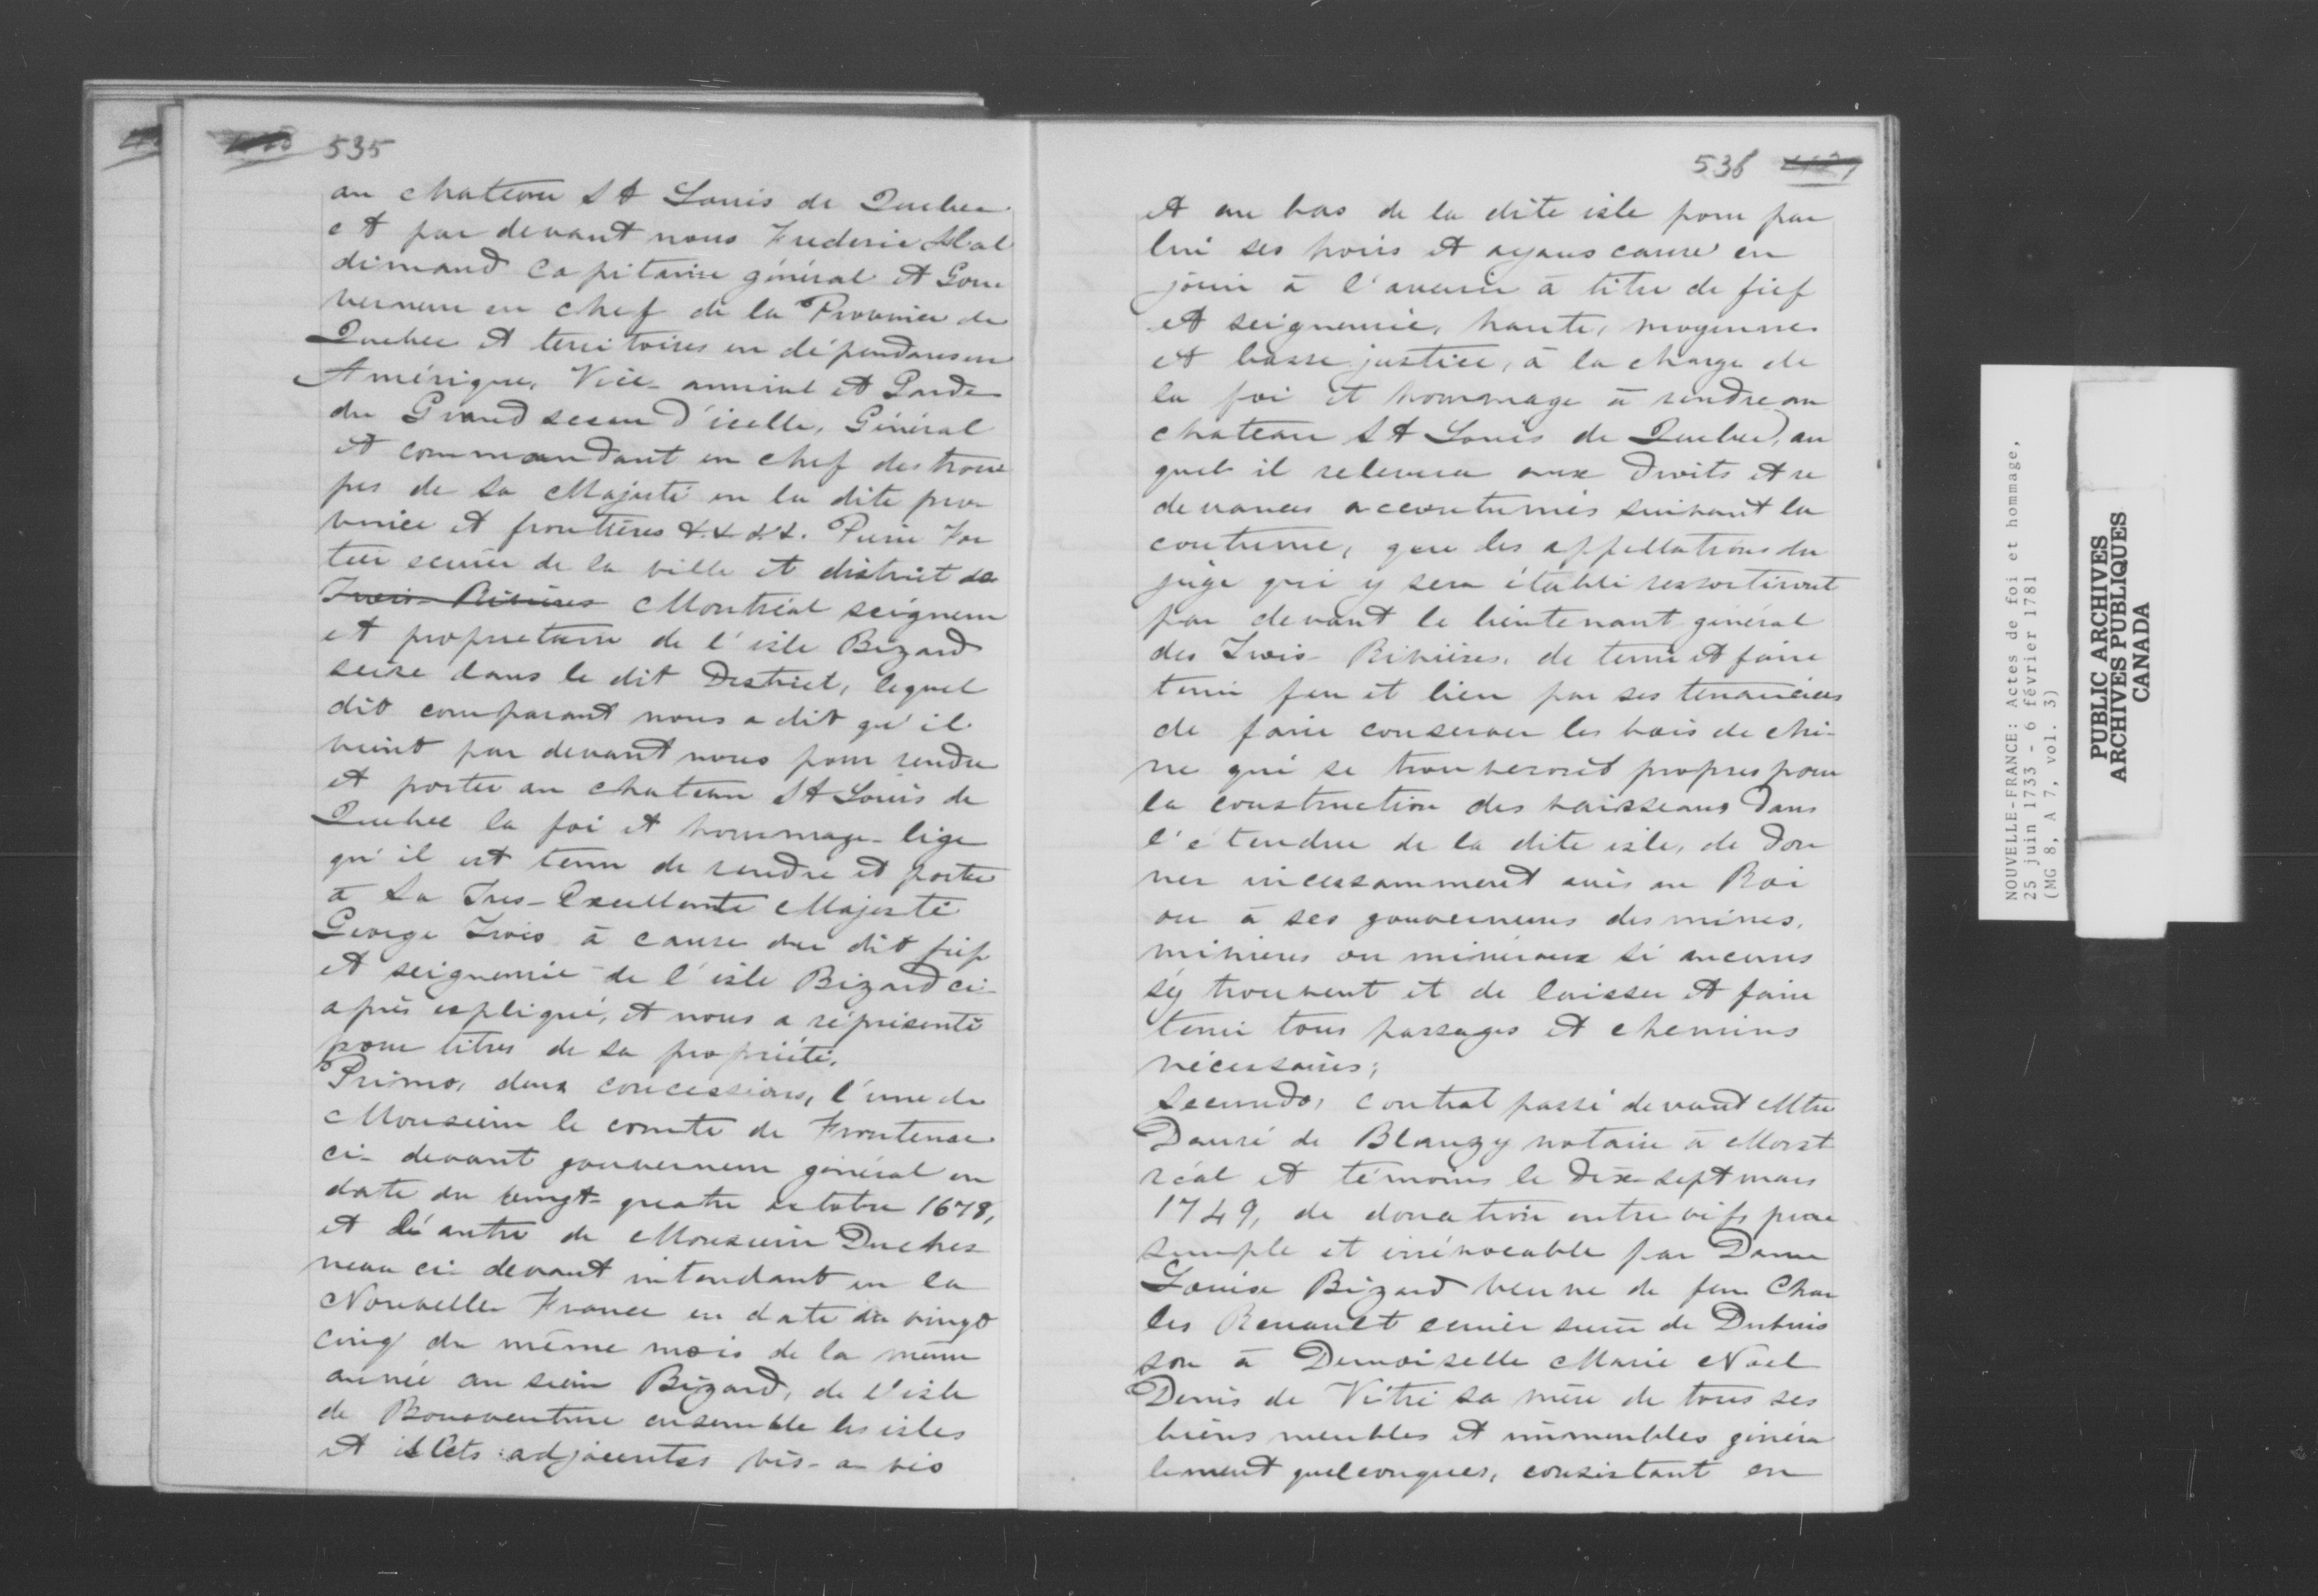 535
au chateau St Louis de Quebec
et par devant nous Frederic Hal
dimand Capitaine général et Gou
verneur en chef de la Province de
Quebec et territoires en dépendans en
Amérique, Vice-amiral et Garde
du Grand sceau d'icelle, Général
et commandant en chef des trou
pes de sa Majesté en la dite pro
vince et frontières &.&.&.&.
tier ecuier de la ville et district de
Trois-Rivières Montréal seigneur
et proprietaire de l'isle Bizard
seize dans le dit District, lequel
dit comparant nous a dit qu'il
vient par devant nous pour rendre
et porter au chateau St Louis de
Quebec la foi et hommage-lige
qu'il est tenu de rendre et porter
à Sa Tres-Excellente Majesté
George Trois à cause du dit fief
et seigneurie de l'isle Bizard ci-
après expliqué, et nous a réprésenté
pour titres de sa propriété.
Primo, deux concessions, l'une de
Monsieur le comte de Frontenac
ci-devant gouverneur général en
date du vingt-quatre octobre 1678,
et l'autre de Monsieur Duches
neau ci-devant intendant en la
Nouvelle France en date du vingt
cinq du même mois de la même
année au sieur Bizard, de l'isle
de Bonaventure ensemble les isles
et islets adjacentes vis-a-vis
536
et au bas de la dite isle pour par
lui ses hoirs et ayans cause en
jouir à l'avenir à titre de fief
et seigneurie, haute, moyenne
et basse justice, à la charge de
la foi et hommage à rendre au
chateau St Louis de Quebec, au
quel il relevera aux droits et re
devances accoutumés suivant la
coutume, que les appellations du
juge qui y sera établi ressortiront
par devant le lieutenant général
des Trois-Rivières, de tenir et faire
tenir feu et lieu par ses tenanciers
de faire conserver les bois de chê-
ne qui se trouveront propres pour
la construction des vaisseaux dans
l'étendue de la dite isle, de don
ner incessamment avis au Roi
ou à ses gouverneurs des mines,
minieres ou mineraux si aucuns
s'y trouvent et de laisser et faire
tenir tous passages et chemins
nécessaires;
Secundo, contrat passé devant Mtre
Danré de Blanzy notaire à Mont
réal et témoins le dix-sept mars
1749, de donation entre vifs pure
simple et irrévocable par Dame
Louise Bizard veuve de feu Char
les Renault ecuier sieur de Dubuis
son à Demoiselle Marie Noel
Denis de Vitré sa mère de tous ses
biens meubles et immeubles généra
lement quelconques, consistant en
NOUVELLE-FRANCE: Actes de foi et hommage,
25 juin 1733 - 6 février 1781
(MG 8, A 7, vol. 3)
PUBLIC ARCHIVES
ARCHIVES PUBLIQUES
CANADA